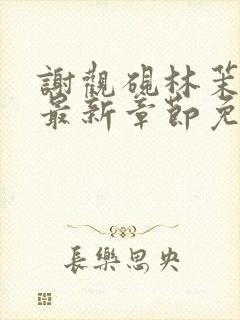 謝觀硯林茉
最新章節免
長樂思央